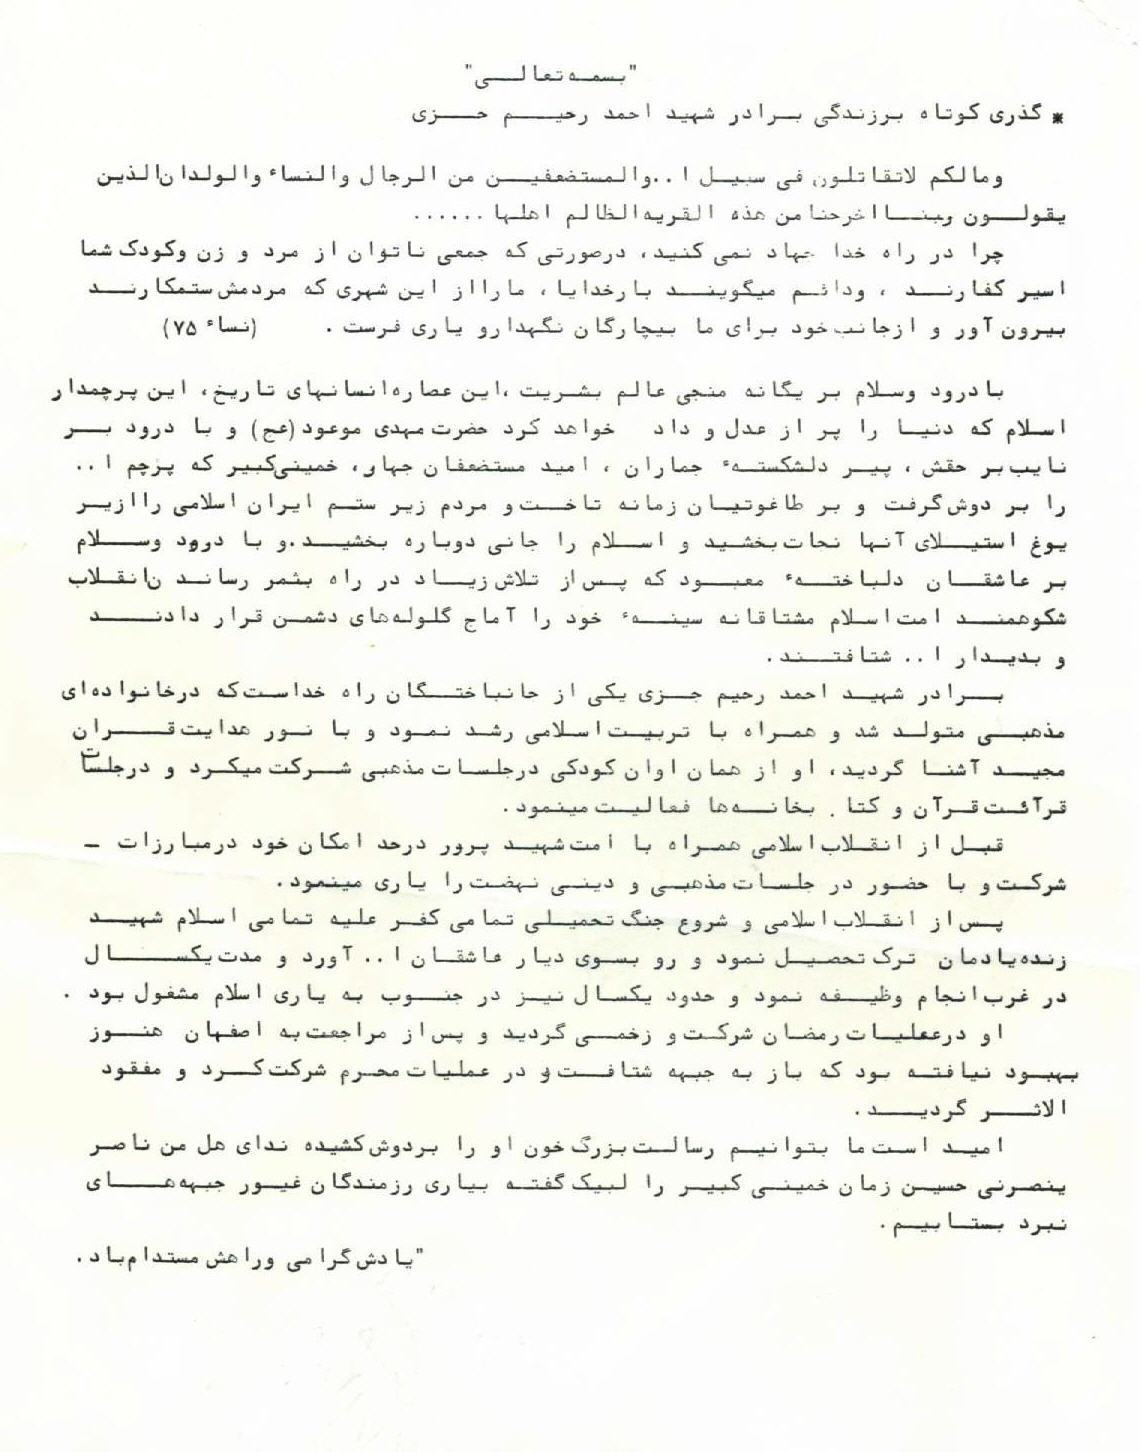 "بسمه تعالی"
* گذری کوتاه برزندگی برادر شهید احمد رحیم جزی
ومالکم لاتقاتلون فی سبیل ا..والمستضعفین من الرجال والنساء والولدان الذین
یقولون ربنا اخرجنا من هذه القریه الظالم اهلها ......
چرا در راه خدا جهاد نمی کنید، درصورتی که جمعی ناتوان از مرد و زن وکودک شما
اسیر کفارند ، ودائم میگویند بارخدایا، مارا از این شهری که مردمش ستمکارند
بیرون آور و ازجانب خود برای ما بیچارگان نگهدارو یاری فرست . (نساء ۷۵)
بادرود وسلام بر یگانه منجی عالم بشریت ،این عصاره انسانهای تاریخ، این پرچمدار
اسلام که دنیا را پر از عدل و داد خواهد کرد حضرت مهدی موعود (عج) و با درود بر
نایب بر حقش ، پیر دلشکستهء جماران ، امید مستضعفان جهان، خمینی کبیر که پرچم ا..
را بر دوش گرفت و بر طاغوتیان زمانه تاخت و مردم زیر ستم ایران اسلامی را ازیر
یوغ استیلای آنها نجات بخشید و اسلام را جانی دوباره بخشید.و با درود وسلام
بر عاشقان دلباختهء معبود که پس از تلاش زیاد در راه بثمر رساندن انقلاب
شکوهمند امت اسلام مشتاقانه سینهء خود را آماج گلوله‌های دشمن قرار دادند
و بدیدار ا.. شتافتند.
برادر شهید احمد رحیم جزی یکی از جانباختگان راه خداست که درخانواده ای
مذهبی متولد شد و همراه با تربیت اسلامی رشد نمود و با نور هدایت قران
مجید آشنا گردید، او از همان اوان کودکی درجلسات مذهبی شرکت میکرد و درجلسات
قرآئت قرآن و کتا . بخانه‌ها فعالیت مینمود.
قبل از انقلاب اسلامی همراه با امت شهید پرور درحد امکان خود درمبارزات -
شرکت و با حضور در جلسات مذهبی و دینی نهضت را یاری مینمود.
پس از انقلاب اسلامی و شروع جنگ تحمیلی تمامی کفر علیه تمامی اسلام شهید
زنده یادمان ترک تحصیل نمود و رو بسوی دیار عاشقان ا.. آورد و مدت یکسال
در غرب انجام وظیفه نمود و حدود یکسال نیز در جنوب به یاری اسلام مشغول بود .
او درعملیات رمضان شرکت و زخمی گردید و پس از مراجعت به اصفهان هنوز
بهبود نیافته بود که باز به جبهه شتافت و در عملیات محرم شرکت کرد و مفقود
الاثر گردید.
امید است ما بتوانیم رسالت بزرگ خون او را بردوش کشیده ندای هل من ناصر
ینصرنی حسین زمان خمینی کبیر را لبیک گفته بیاری رزمندگان غیور جبهه‌های
نبرد بستابیم.
"یادش گرامی وراهش مستدام باد.